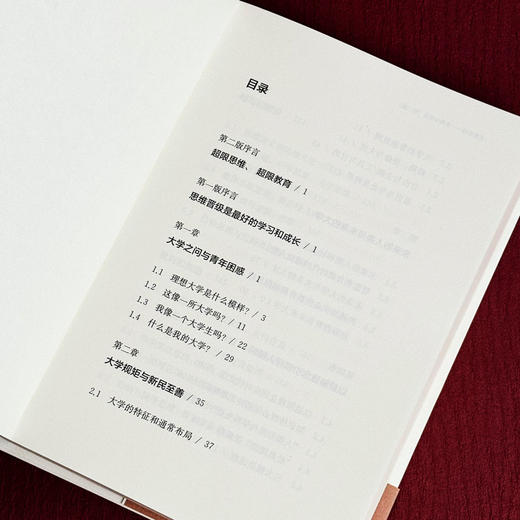 目录
第二版序言
超限思维、超限教育 / 1
第一版序言
思维晋级是最好的学习和成长 / 1
第一章
大学之问与青年困惑 / 1
1.1 理想大学是什么模样? / 3
1.2 这像一所大学吗? / 11
1.3 我像一个大学生吗? / 22
1.4 什么是我的大学? / 29
第二章
大学规矩与新民至善 / 35
2.1 大学的特征和通常布局 / 37